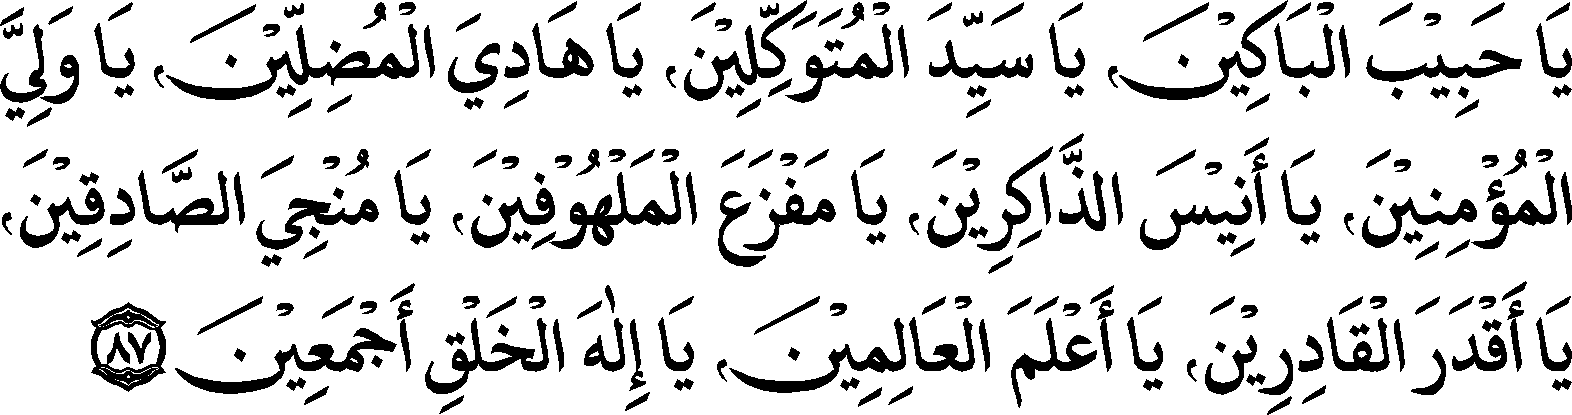 يَا حَبِيْبَ الْبَاكِيْنَ، يَا سَيِّدَ الْمُتَوَكِّلِيْنَ، يَا هَادِيَ الْمُضِلِّيْنَ، يَا وَلِيَّ
الْمُؤْمِنِيْنَ، يَا أَنِيْسَ الذَّاكِرِيْنَ، يَا مَفْزَعَ الْمَلْهُوْفِيْنَ، يَا مُنْجِيَ الصَّادِقِيْنَ،
يَا أَقْدَرَ الْقَادِرِيْنَ، يَا أَعْلَمَ الْعَالِمِيْنَ، يَا إِلٰهَ الْخَلْقِ أَجْمَعِيْنَ ٨٧